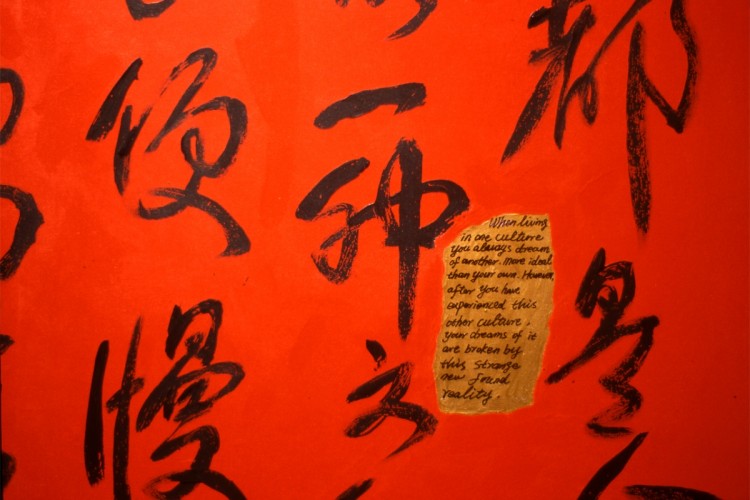 都是
一种文
便慢
When living
in one culture
you always dream
of another. more ideal
than your own. However,
after you have
experienced this
other culture.
your dreams of it
are broken by
this strange
new found
reality.